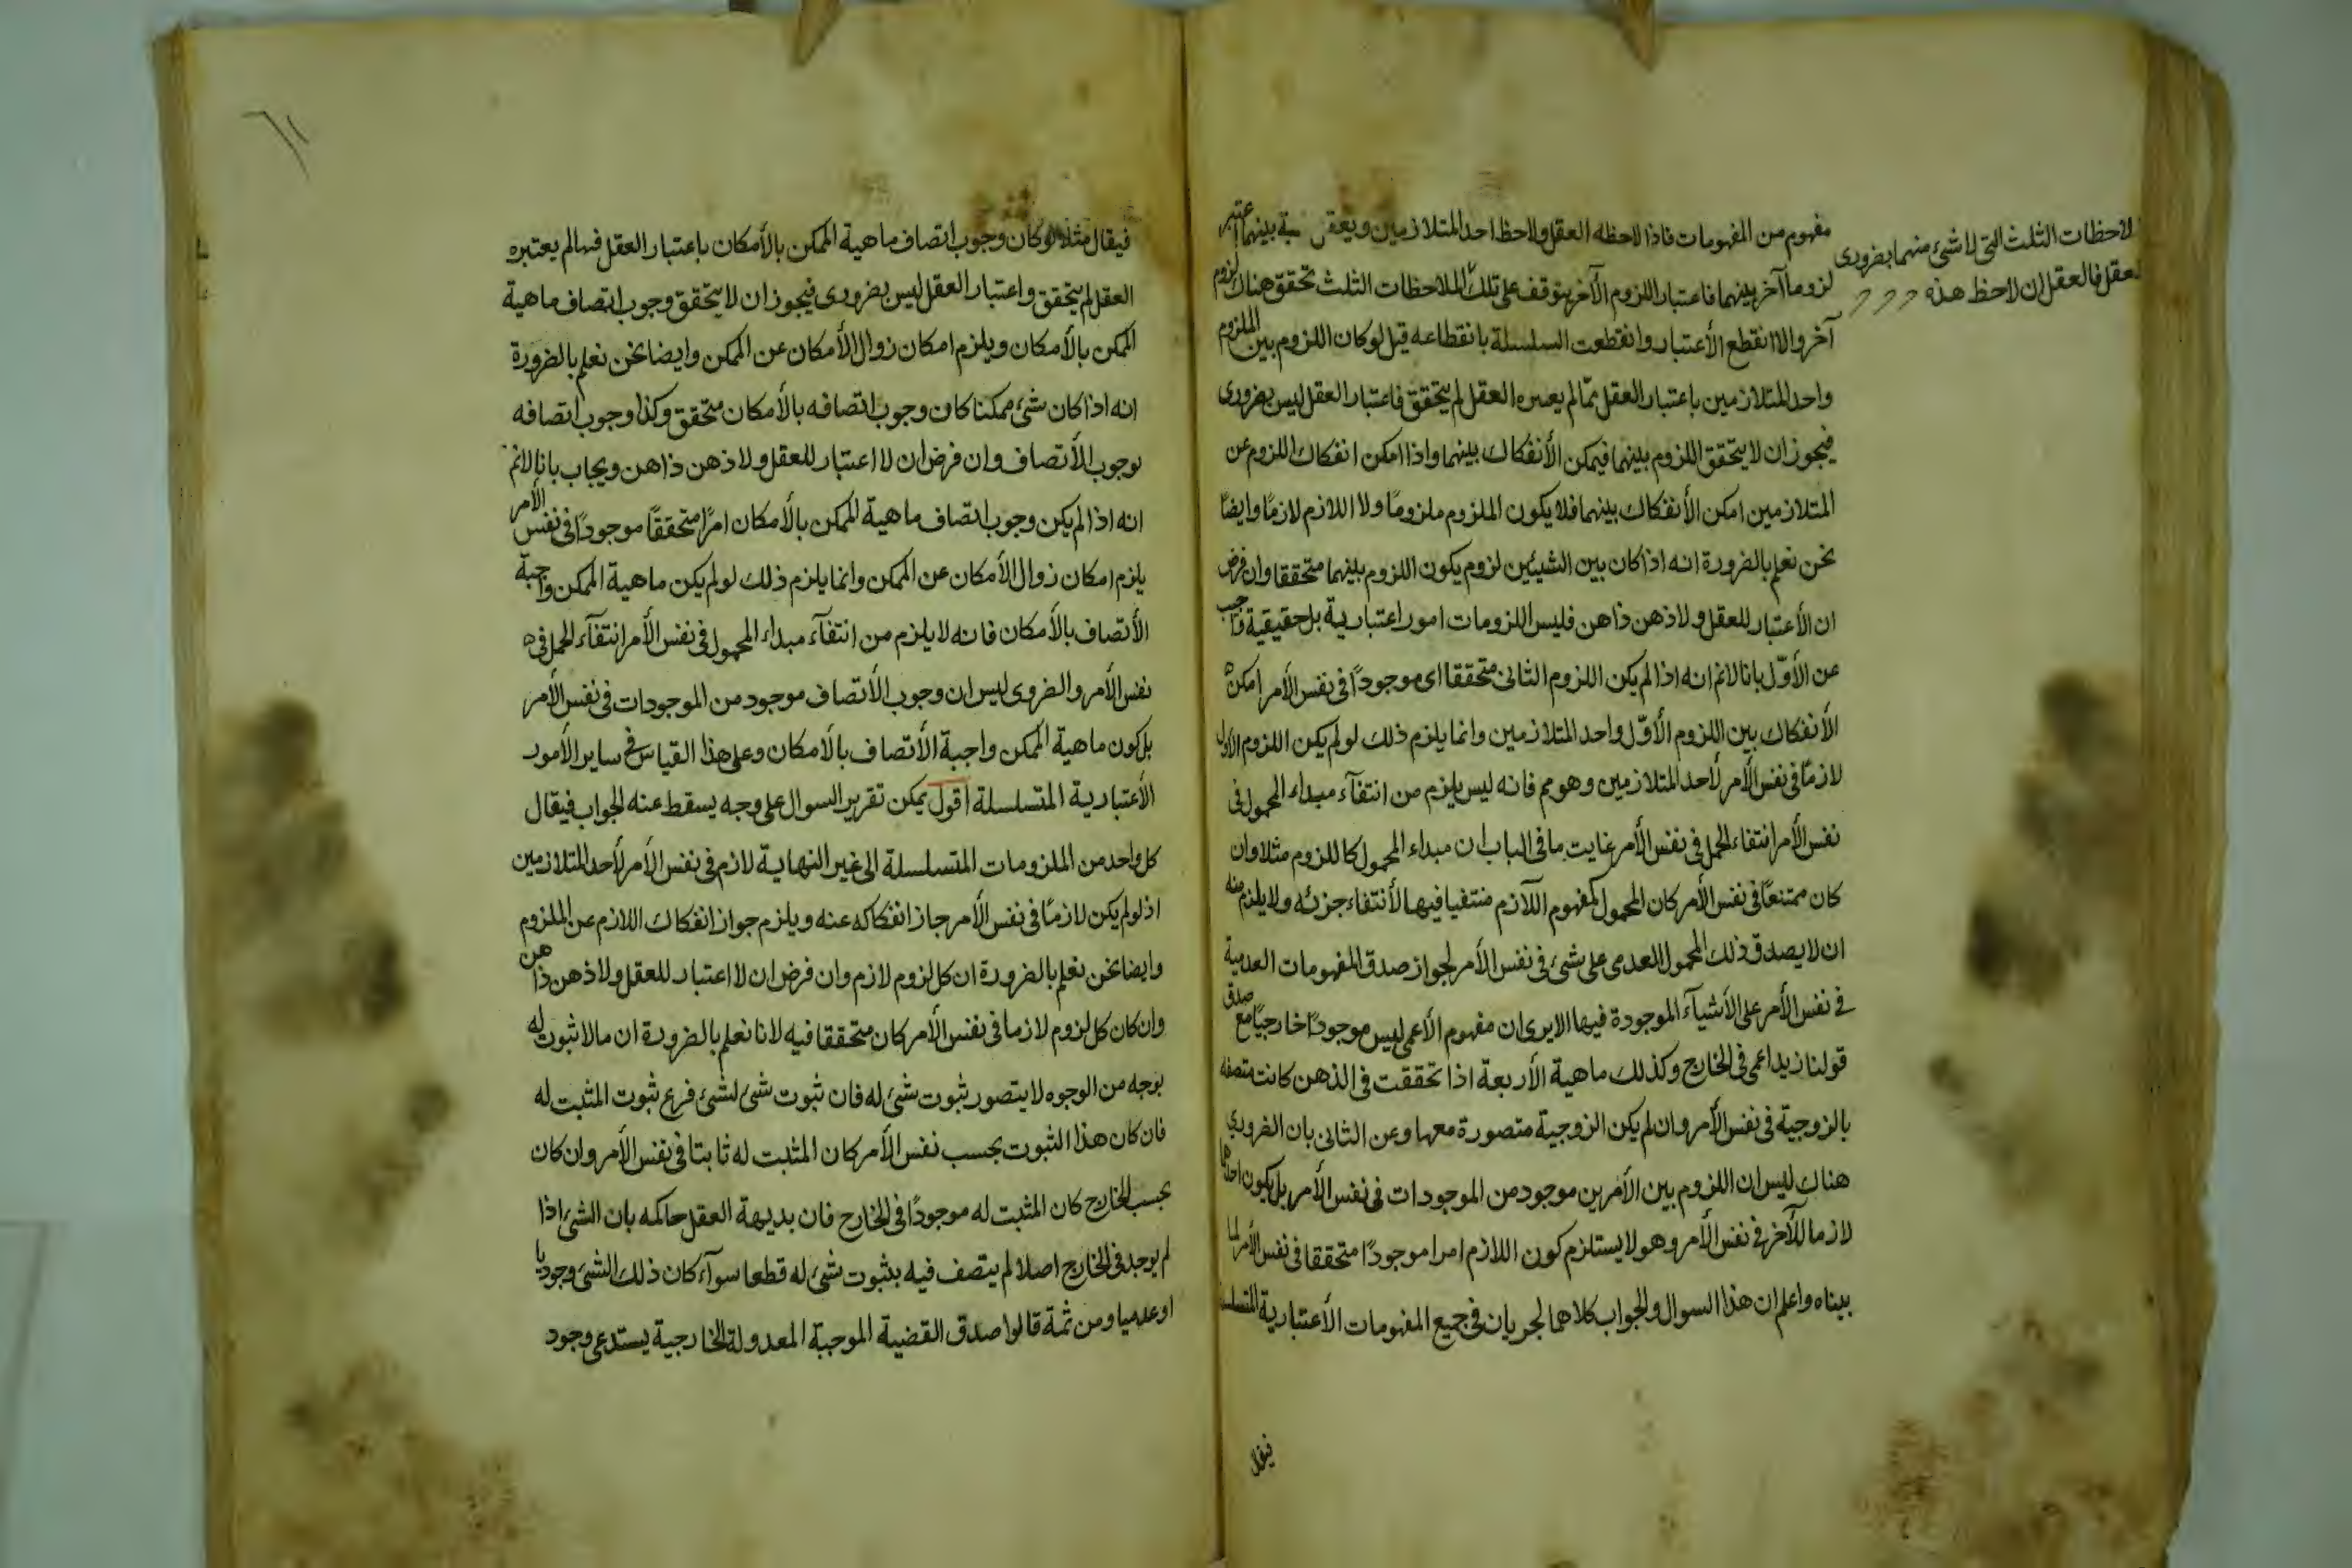 مفهوم من المفهومات فاذا لاحظه العقل ولاحظ احد المتلازمين ويعقل نسبة بينهما اعتبر
لزوما آخر بينهما فاعتبار اللزوم الآخر يتوقف على تلك الملاحظات الثلث تحقق هناك لزوم
آخر والا انقطع الأعتبار وانقطعت السلسلة بانقطاعه قيل لو كان اللزوم بين الملزوم
واحد المتلازمين باعتبار العقل فما لم يعتبره العقل لم يتحقق فاعتبار العقل ليس بضرورى
فيجوز ان لا يتحقق اللزوم بينهما فيمكن الأنفكاك بينهما واذا امكن انفكاك اللزوم عن
المتلازمين امكن الأنفكاك بينهما فلا يكون الملزوم ملزومًا ولا اللازم لازمًا وايضًا
نحن نعلم بالضرورة انه اذا كان بين الشيئين لزوم يكون اللزوم بينهما متحققا وان فرض
ان الأعتبار للعقل ولا ذهن ذاهن فليس اللزومات امور اعتبارية بل حقيقية فاجيب
عن الأوّل بانا لانم انه اذا لم يكن اللزوم الثانى متحققا اى موجودًا فى نفس الأمر امكن
الأنفكاك بين اللزوم الأوّل واحد المتلازمين وانما يلزم ذلك لو لم يكن اللزوم الأول
لازمًا فى نفس الأمر لأحد المتلازمين وهو مم فانه ليس يلزم من انتفآء مبداء المحمول فى
نفس الأمر انتفاء الحمل فى نفس الأمر غايت ما فى الباب ان مبداء المحمول كاللزوم مثلا وان
كان ممتنعًا فى نفس الأمر كان المحمول كمفهوم اللآزم منتفيا فيها لأنتفاء جزئه ولا يلزم منه
ان لا يصدق ذلك المحمول العدمى على شئ فى نفس الأمر لجواز صدق المفهومات العدمية
فى نفس الأمر على الأشيآء الموجودة فيها الا يرى ان مفهوم الأعمى ليس موجودًا خارجيًا مع صدق
قولنا زيد اعمى فى الخارج وكذلك ماهية الأربعة اذا تحققت فى الذهن كانت متصفه
بالزوجية فى نفس الأمر وان لم يكن الزوجية متصورة معها وعن الثانى بان الضرورى
هناك ليس ان اللزوم بين الأمرين موجود من الموجودات فى نفس الأمر بل يكون احدهما
لازما للآخر فى نفس الأمر وهو لا يستلزم كون اللازم امرا موجودًا متحققا فى نفس الأمر لما
بيناه واعلم ان هذا السوال والجواب كلاهما لجريان فى جميع المفهومات الأعتبارية المتسلسلة
فيقال
لاحظات الثلث التى لا شئ منهما بضرورى
لعقل فالعقل ان لاحظ هذه
فيقال مثلا لو كان وجوب اتصاف ماهية الممكن بالأمكان باعتبار العقل فما لم يعتبره
العقل لم يتحقق واعتبار العقل ليس بضرورى فيجوز ان لا يتحقق وجوب اتصاف ماهية
الممكن بالأمكان ويلزم امكان زوال الأمكان عن الممكن وايضا نحن نعلم بالضرورة
انه اذا كان شئ ممكنا كان وجوب اتصافه بالأمكان متحقق وكذا وجوب اتصافه
بوجوب الأتصاف وان فرض ان لا اعتبار للعقل ولا ذهن ذاهن ويجاب بانا لانم
انه اذا لم يكن وجوب اتصاف ماهية الممكن بالأمكان امرًا متحققًا موجودًا فى نفس الأمر
يلزم امكان زوال الأمكان عن الممكن وانما يلزم ذلك لو لم يكن ماهية الممكن واجبة
الأتصاف بالأمكان فانه لا يلزم من انتفآء مبداء المحمول فى نفس الأمر انتفآء الحمل فى
نفس الأمر والضرورى ليس ان وجوب الأتصاف موجود من الموجودات فى نفس الأمر
بل كون ماهية الممكن واجبة الأتصاف بالأمكان وعلى هذا القياس فى ساير الأمور
الأعتبارية المتسلسلة اقول يمكن تقرير السوال على وجه يسقط عنه الجواب فيقال
كل واحد من الملزومات المتسلسلة الى غير النهاية لازم فى نفس الأمر لأحد المتلازمين
اذ لو لم يكن لازمًا فى نفس الأمر جاز انفكاكه عنه ويلزم جواز انفكاك اللازم عن الملزوم
وايضا نحن نعلم بالضرورة ان كل لزوم لازم وان فرض ان لا اعتبار للعقل ولا ذهن ذاهن
وان كان كل لزوم لازما فى نفس الأمر كان متحققا فيه لانا نعلم بالضرورة ان ما لا ثبوت له
بوجه من الوجوه لا يتصور ثبوت شئ له فان ثبوت شئ لشئ فرع ثبوت المثبت له
فان كان هذا الثبوت بحسب نفس الأمر كان المثبت له ثابتا فى نفس الأمر وان كان
بحسب الخارج كان المثبت له موجودًا فى الخارج فان بديهة العقل حاكمه بان الشئ اذا
لم يوجد فى الخارج اصلا لم يتصف فيه بثبوت شئ له قطعا سوآء كان ذلك الشئ وجوديا
او عدميا ومن ثمة قالوا صدق القضية الموجبة المعدولة الخارجية يستدعى وجود